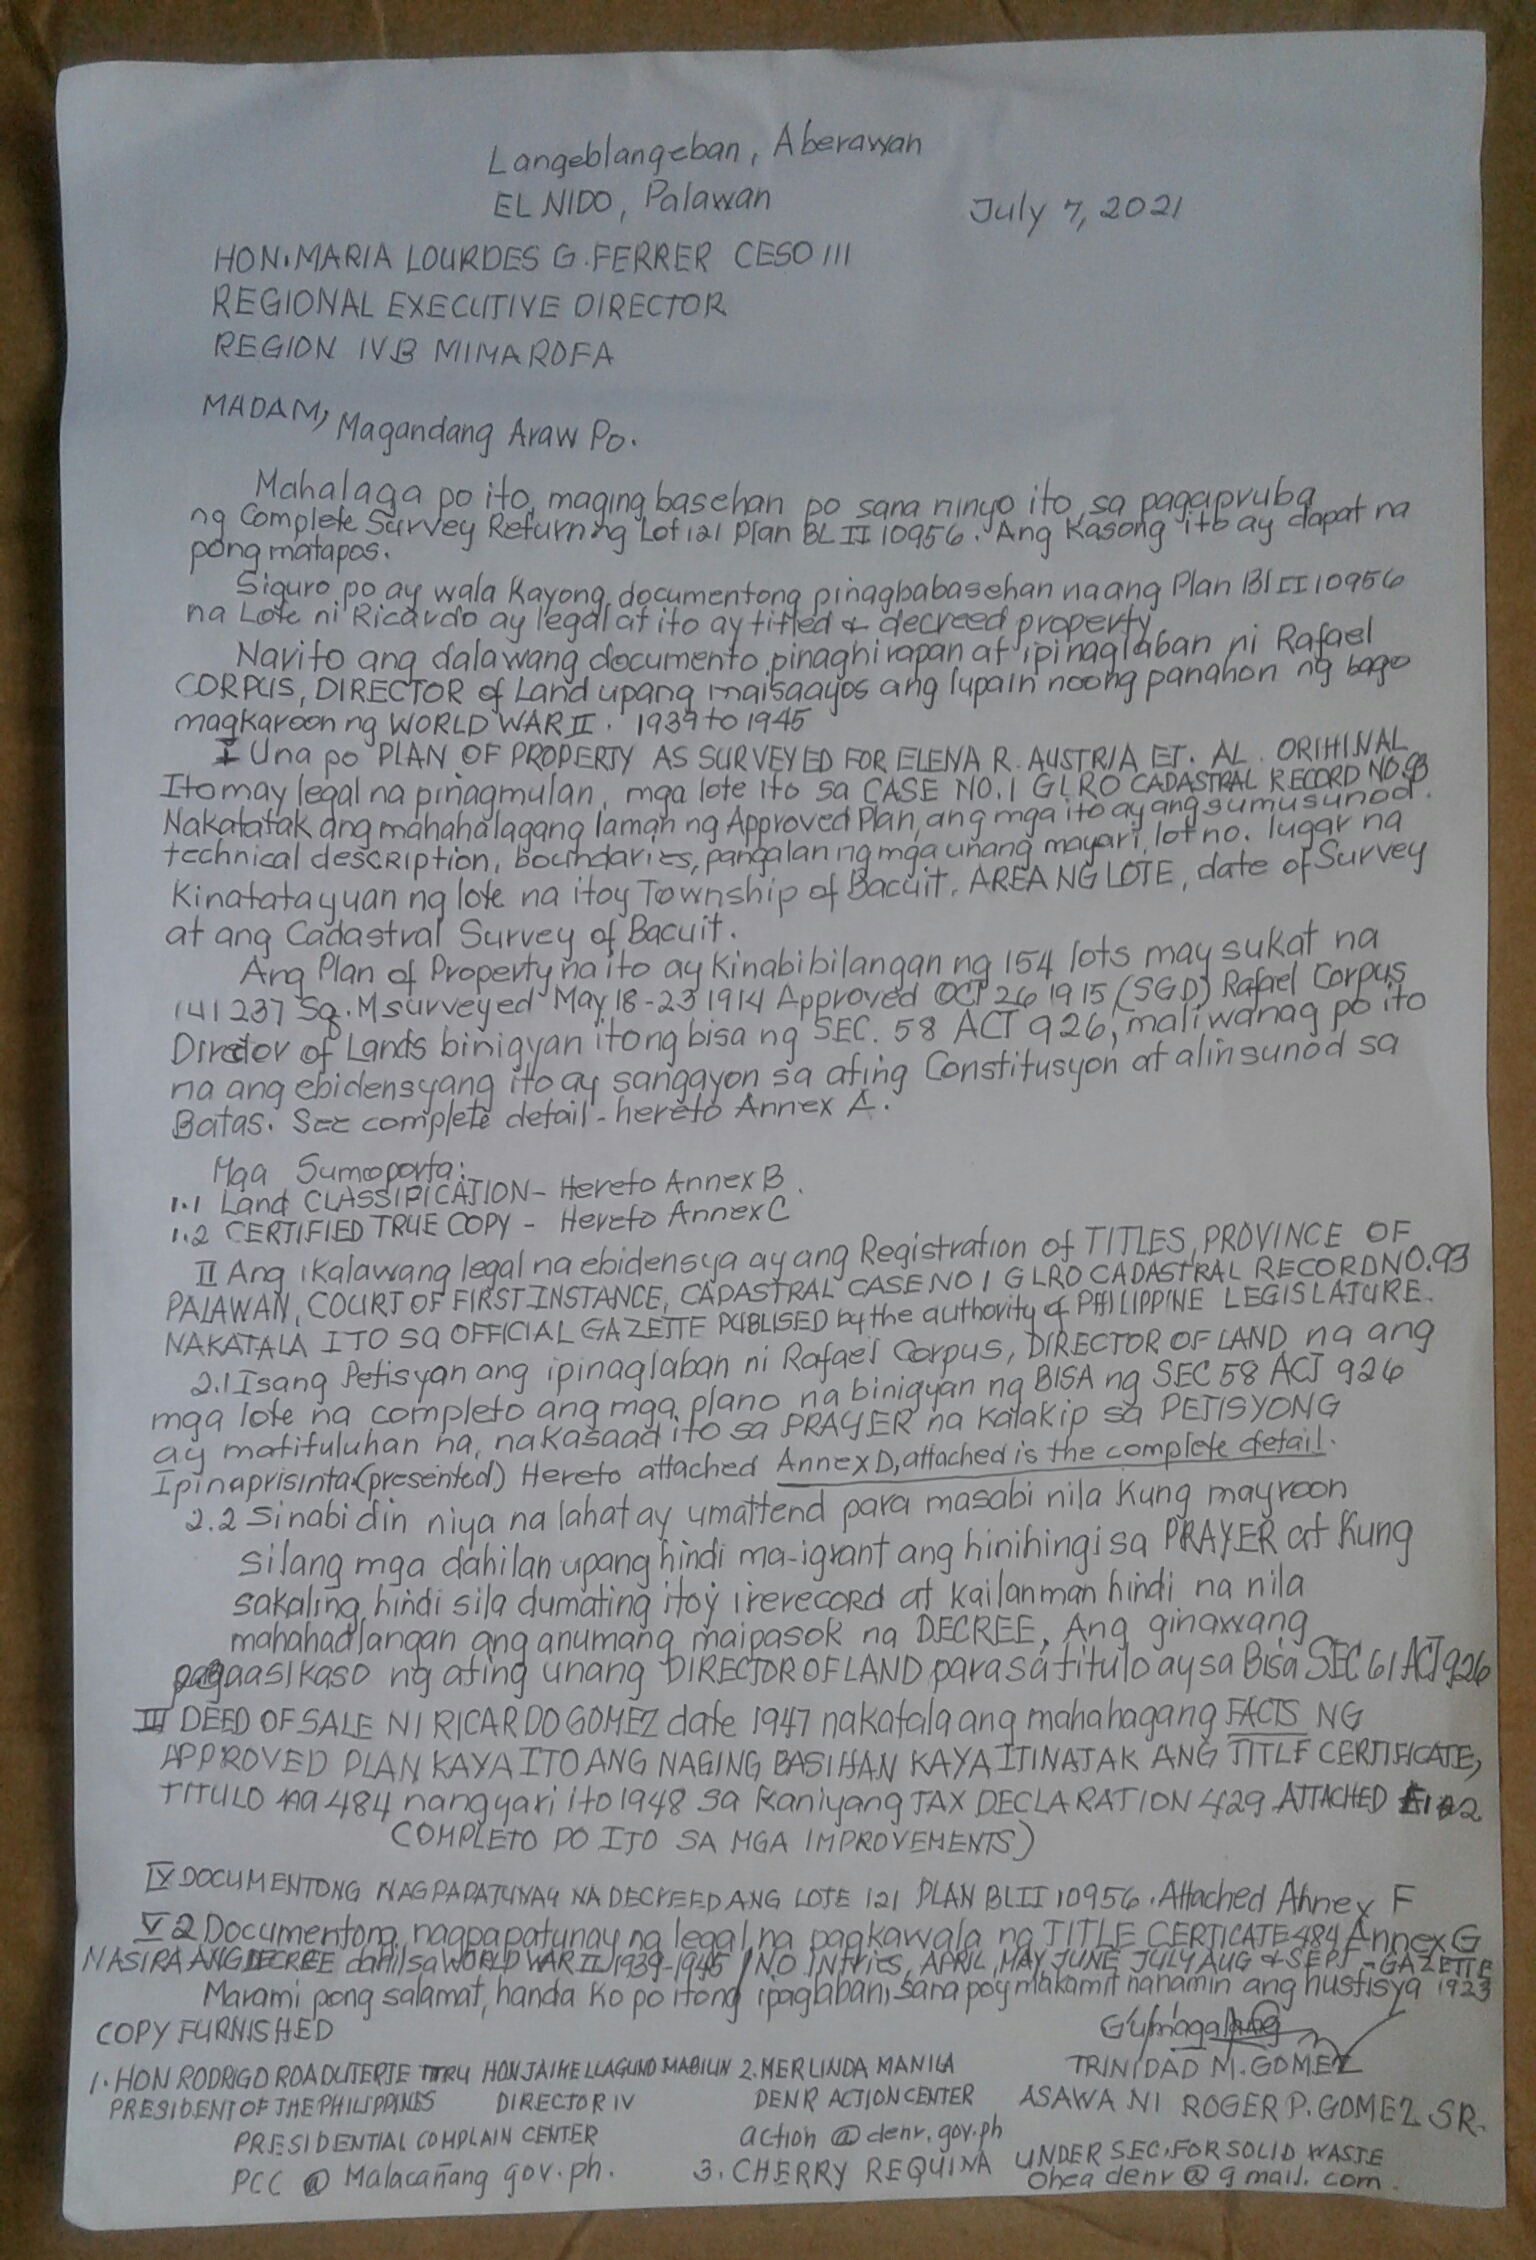 Langeblangeban, Aberawan
EL NIDO, Palawan July 7, 2021
HON. MARIA LOURDES G. FERRER CESO III
REGIONAL EXECUTIVE DIRECTOR
REGION IVB MIMAROFA
MADAM, Magandang Araw Po.
Mahalaga po ito, maging basehan po sana ninyo ito, sa pagapruba
ng Complete Survey Returning Lot 121 Plan BL II 10956. Ang Kasong ito ay dapat na
pong matapos.
Siguro po ay wala Kayong documentong pinagbabasehan na ang Plan Bl II 10956
na Lote ni Ricardo ay legal at ito ay titled & decreed property.
Narito ang dalawang documento pinaghirapan at ipinaglaban ni Rafael
CORPUS, DIRECTOR of Land upang maisaayos ang lupain noong panahon ng bago
magkaroon ng WORLD WAR II. 1939 to 1945
I Una po PLAN OF PROPERTY AS SURVEYED FOR ELENA R. AUSTRIA ET. AL. ORIHINAL
Ito may legal na pinagmulan, mga lote ito sa CASE NO. 1 GLRO CADASTRAL RECORD NO. 93
Nakatatak ang mahahalagang laman ng Approved Plan, ang mga ito ay ang sumusunod.
technical description, boundaries, pangalan ng mga unang mayari, lot no. lugar na
Kinatatayuan ng lote na itoy Township of Bacuit, AREA NG LOTE, date of Survey
at ang Cadastral Survey of Bacuit.
Ang Plan of Property na ito ay Kinabibilangan ng 154 lots may sukat na
141 237 Sq. M surveyed May 18-23 1914 Approved OCT 26 1915 (SGD) Rafael Corpus
Director of Lands binigyan itong bisa ng SEC. 58 ACT 926, maliwanag po ito
na ang ebidensyang ito ay sangayon sa ating Constitusyon at alinsunod sa
Batas. See complete detail - hereto Annex A.
Mga Sumoporta:
1.1 Land CLASSIFICATION - Hereto Annex B.
1.2 CERTIFIED TRUE COPY - Hereto Annex C
II Ang ikalawang legal na ebidensya ay ang Registration of TITLES, PROVINCE OF
PALAWAN, COURT OF FIRST INSTANCE, CADASTRAL CASE NO 1 GLRO CADASTRAL RECORD NO. 93
NAKATALA ITO SA OFFICIAL GAZETTE PUBLISED by the authority of PHILIPPINE LEGISLATURE.
2.1 Isang Petisyan ang ipinaglaban ni Rafael Corpus, DIRECTOR OF LAND na ang
mga lote na completo ang mga plano na binigyan ng BISA ng SEC 58 ACT 926
ay matituluhan na, nakasaad ito sa PRAYER na Kalakip sa PETISYONG
Ipinaprisinta (presented) Hereto attached Annex D, attached is the complete detail.
2.2 Sinabi din niya na lahat ay umattend para masabi nila Kung mayroon
silang mga dahilan upang hindi ma-igrant ang hinihingi sa PRAYER at Kung
sakaling hindi sila dumating itoy irerecord at kailanman hindi na nila
mahahadlangan ang anumang maipasok na DECREE. Ang ginawang
pagaasikaso ng ating unang DIRECTOR OF LAND para sa titulo ay sa Bisa SEC 61 ACT 926
III DEED OF SALE NI RICARDO GOMEZ date 1947 nakatala ang mahahagang FACTS NG
APPROVED PLAN KAYA ITO ANG NAGING BASIHAN KAYA ITINATAK ANG TITLE CERTIFICATE,
TITULO na 484 nangyari ito 1948 sa Kaniyang TAX DECLARATION 429 ATTACHED
COMPLETO PO ITO SA MGA IMPROVEMENTS)
IV DOCUMENTONG NAGPAPATUNAY NA DECREED ANG LOTE 121 PLAN BLII 10956. Attached Annex F
V 2 Documentong nagpapatunay ng legal na pagkawala ng TITLE CERTICATE 484 Annex G
NASIRA ANG DECREE dahil sa WORLD WAR II 1939-1945 / NO INtries, APRIL, MAY JUNE JULY AUG & SEPT - GAZETTE
Marami pong salamat, handa Ko po itong ipaglaban, sana poy makamit na namin ang hustisya 1923
COPY FURNISHED Gumagalang
1. HON RODRIGO ROA DUTERTE TRU HON JAIME LLAGUNO MABILIN 2. MERLINDA MANILA TRINIDAD M. GOMEZ
PRESIDENT OF THE PHILIPPINES DIRECTOR IV DENR ACTION CENTER ASAWA NI ROGER P. GOMEZ SR.
PRESIDENTIAL COMPLAIN CENTER action @ denr.gov.ph
PCC @ Malacañang gov.ph. 3. CHERRY REQUINA UNDER SEC. FOR SOLID WASTE
Ohea denr @ gmail.com.